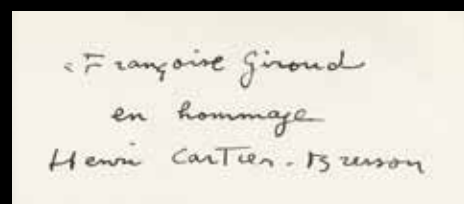 à Françoise Giroud
en hommage
Henri Cartier-Bresson